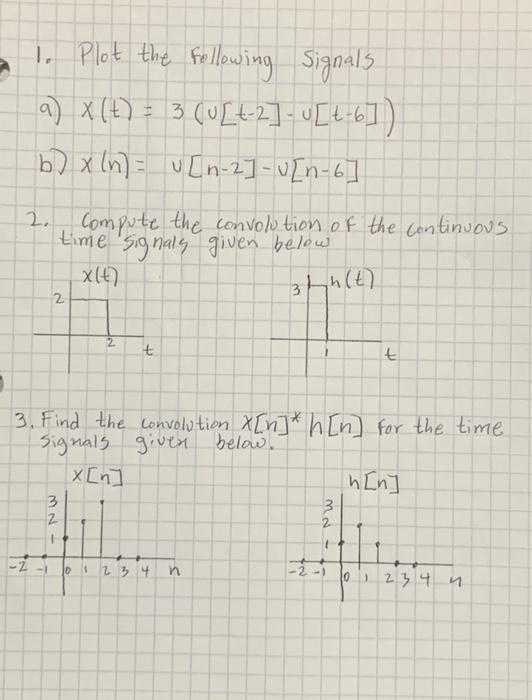 1. Plot the following signals
a) x(t) = 3 (u[t-2] - u[t-6])
b) x(n) = u[n-2] - u[n-6]
2. Compute the convolution of the continuous
time signals given below
x(t)
2
2
t
h(t)
3
1
t
3. Find the convolution x[n] * h[n] for the time
signals given below.
x[n]
3
2
1
-2 -1 0 1 2 3 4 n
h[n]
3
2
1
-2 -1 0 1 2 3 4 n